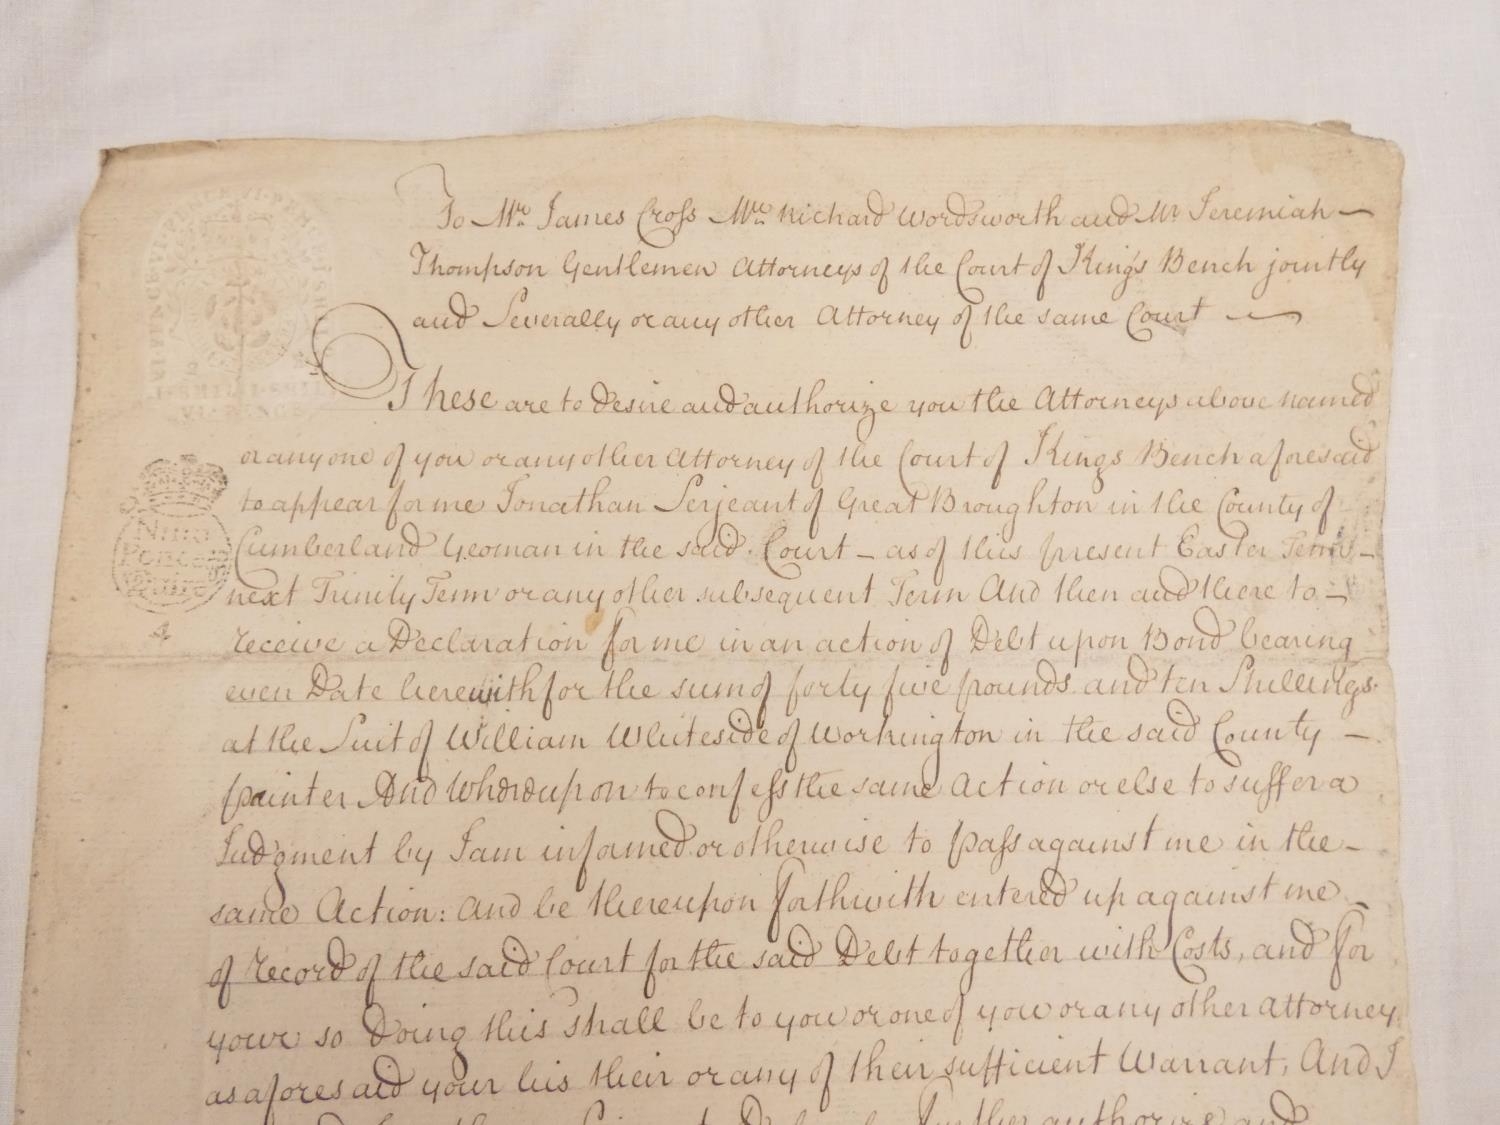 To Mr. James Cross Mr. Richard Wordsworth and Mr Jeremiah
Thompson Gentlemen Attorneys of the Court of Kings Bench jointly
and Severally or any other Attorney of the same Court
These are to desire and authorize you the Attorneys above named
or any one of you or any other Attorney of the Court of Kings Bench aforesaid
to appear for me Jonathan Serjeant of Great Broughton in the County of
Cumberland Yeoman in the said Court – as of this present Easter Term –
next Trinity Term or any other subsequent Term And then and there to –
receive a Declaration for me in an action of Debt upon Bond bearing
even Date herewith for the sum of forty five pounds and ten Shillings
at the Suit of William Whiteside of Workington in the said County –
painter And Whereupon to confess the same Action or else to suffer a
Judgment by I am informed or otherwise to pass against me in the –
same Action: and be thereupon forthwith entered up against me –
of record of the said Court for the said Debt together with Costs, and For
your so Doing this shall be to you or one of you or any other attorney
as aforesaid your his their or any of their sufficient Warrant, And I
further authorize and